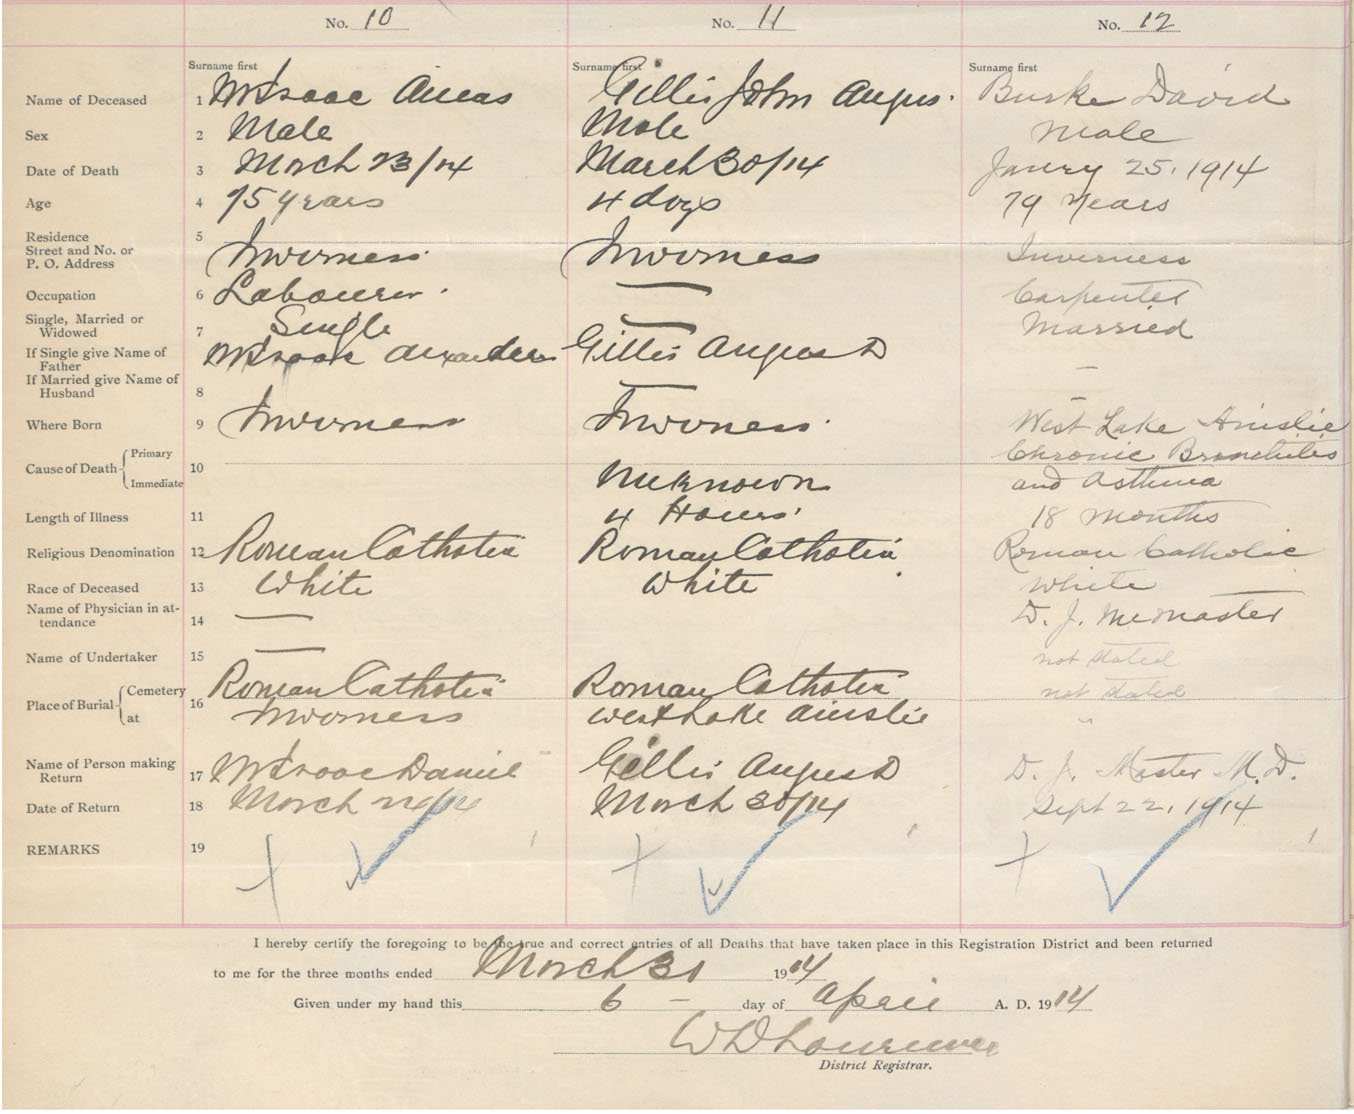 No. 10 No. 11 No. 12
Surname first Surname first Surname first
Name of Deceased 1 McIsaac Aneas Gillis John Angus. Burke David
Sex 2 Male Male Male
Date of Death 3 March 23/14 March 30/14 Janry 25, 1914
Age 4 75 years 4 days 79 Years
Residence
Street and No. or
P. O. Address 5 Inverness Inverness Inverness
Occupation 6 Labourer — Carpenter
Single, Married or
Widowed 7 Single — Married
If Single give Name of
Father McIsaac Alexander Gillis Angus D —
If Married give Name of
Husband 8 — —
Where Born 9 Inverness Inverness West Lake Ainslie
Cause of Death Primary Chronic Bronchitis
Immediate 10 Unknown and Asthma
Length of Illness 11 4 Hours 18 months
Religious Denomination 12 Roman Catholic Roman Catholic Roman Catholic
Race of Deceased 13 White White White
Name of Physician in at-
tendance 14 — D. J. McMaster
Name of Undertaker 15 — not stated
Place of Burial Cemetery Roman Catholic Roman Catholic not stated
at 16 Inverness West Lake Ainslie "
Name of Person making
Return 17 McIsaac Daniel Gillis Angus D D. J. Master M.D.
Date of Return 18 March March 30/14 Sept 22, 1914
REMARKS 19
I hereby certify the foregoing to be the true and correct entries of all Deaths that have taken place in this Registration District and been returned
to me for the three months ended March 31 1914
Given under my hand this 6 — day of April A. D. 1914
District Registrar.